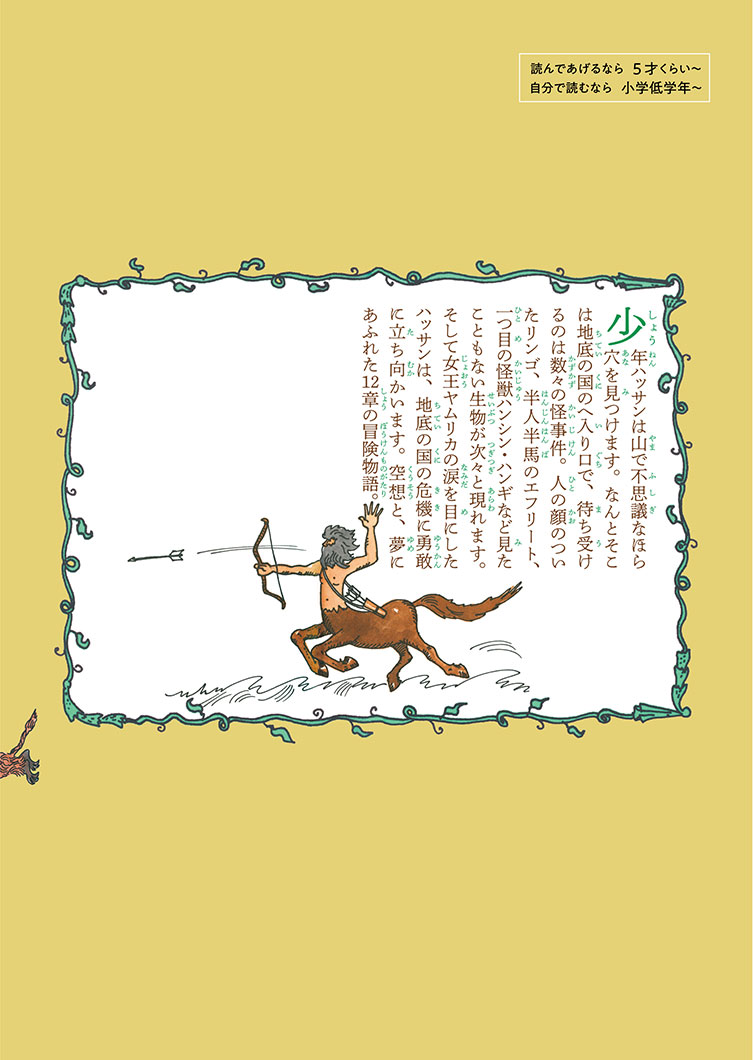 読んであげるなら 5才くらい〜
自分で読むなら 小学低学年〜
少年ハッサンは山で不思議なほら
穴を見つけます。なんとそこ
は地底の国のへ入り口で、待ち受け
るのは数々の怪事件。人の顔のつい
たリンゴ、半人半馬のエフリート、
一つ目の怪獣ハンシン・ハンギなど見た
こともない生物が次々と現れます。
そして女王ヤムリカの涙を目にした
ハッサンは、地底の国の危機に勇敢
に立ち向かいます。空想と、夢に
あふれた12章の冒険物語。